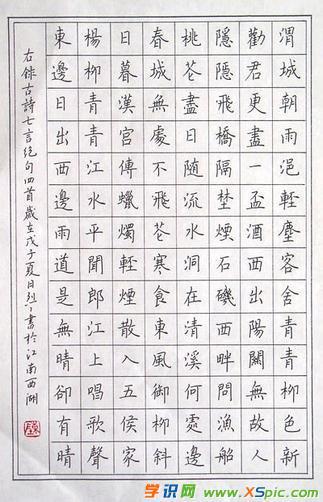 渭城朝雨浥輕塵客舍青青柳色新
勸君更盡一盃酒西出陽關無故人
隱隱飛橋隔埜煙石磯西畔問漁船
桃花盡日隨流水洞在清溪何處邊
春城無處不飛花寒食東風御柳斜
日暮漢宮傳蠟燭輕煙散入五侯家
楊柳青青江水平聞郎江上唱歌聲
東邊日出西邊雨道是無晴卻有晴
右錄古詩七言絕句四首歲在戊子夏日烈〻書於江南西湖
学识网 www.XSpic.com